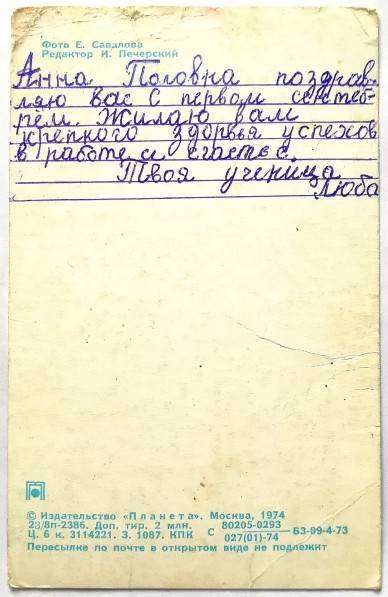 Фото Е. Савалова
Редактор И. Печерский
Анна Половна поздрав-
ляю вас с первом сентеб-
рем. Жилаю вам
крепкого здоровья успехов
в работе и счастье.
Твоя ученица
Люба
© Издательство «Планета». Москва, 1974
23/8п-2386. Доп. тир. 2 млн. 80205-0293
Ц. 6 к. 3114221. З. 1087. КПК С 027(01)-74 БЗ-89-4-73
Пересылке по почте в открытом виде не подлежит